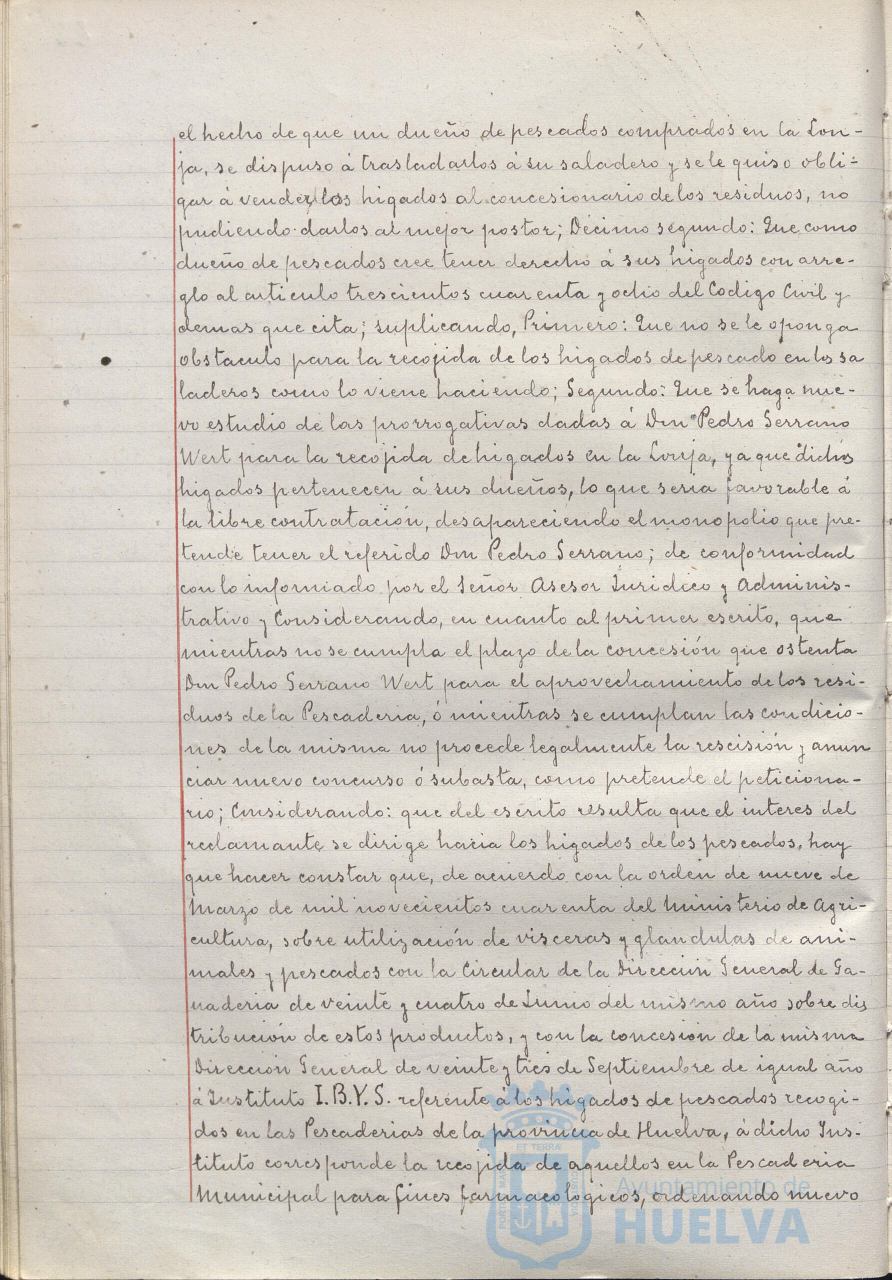 el hecho de que un dueño de pescados comprados en la Lon-
ja, se dispuso á trasladarlos á su saladero y se le quiso obli-
gar á vender los higados al concesionario de los residuos, no
pudiendo darlos al mejor postor; Décimo segundo: Que como
dueño de pescados cree tener derecho á sus higados con arre-
glo al articulo trescientos cuarenta y ocho del Codigo Civil y
demas que cita; suplicando, Primero: Que no se le oponga
obstaculo para la recojida de los higados de pescado en los sa
laderos como lo viene haciendo; Segundo: Que se haga nue-
vo estudio de las prorrogativas dadas á Don Pedro Serrano
Wert para la recojida de higados en la Lonja, ya que dichos
higados pertenecen á sus dueños, lo que seria favorable á
la libre contratación, desapareciendo el monopolio que pre-
tende tener el referido Don Pedro Serrano; de conformidad
con lo informado por el Señor Asesor Juridico y Adminis-
trativo y Considerando, en cuanto al primer escrito, que
mientras no se cumpla el plazo de la concesión que ostenta
Don Pedro Serrano Wert para el aprovechamiento de los resi-
duos de la Pescaderia, ó mientras se cumplan las condicio-
nes de la misma no procede legalmente la rescisión y anun
ciar nuevo concurso ó subasta, como pretende el peticiona-
rio; Considerando: que del escrito resulta que el interes del
reclamante se dirige hacia los higados de los pescados, hay
que hacer constar que, de acuerdo con la orden de nueve de
Marzo de mil novecientos cuarenta del Ministerio de Agri-
cultura, sobre utilización de visceras y glandulas de ani-
males y pescados con la Circular de la Dirección General de Ga-
naderia de veinte y cuatro de Junio del mismo año sobre dis
tribución de estos productos, y con la concesion de la misma
Dirección General de veinte y tres de Septiembre de igual año
á Instituto I.B.Y.S. referente á los higados de pescados recogi-
dos en las Pescaderias de la provincia de Huelva, á dicho Ins-
tituto corresponde la recojida de aquellos en la Pescaderia
Municipal para fines farmacológicos, ordenando nuevo
Ayuntamiento de
HUELVA